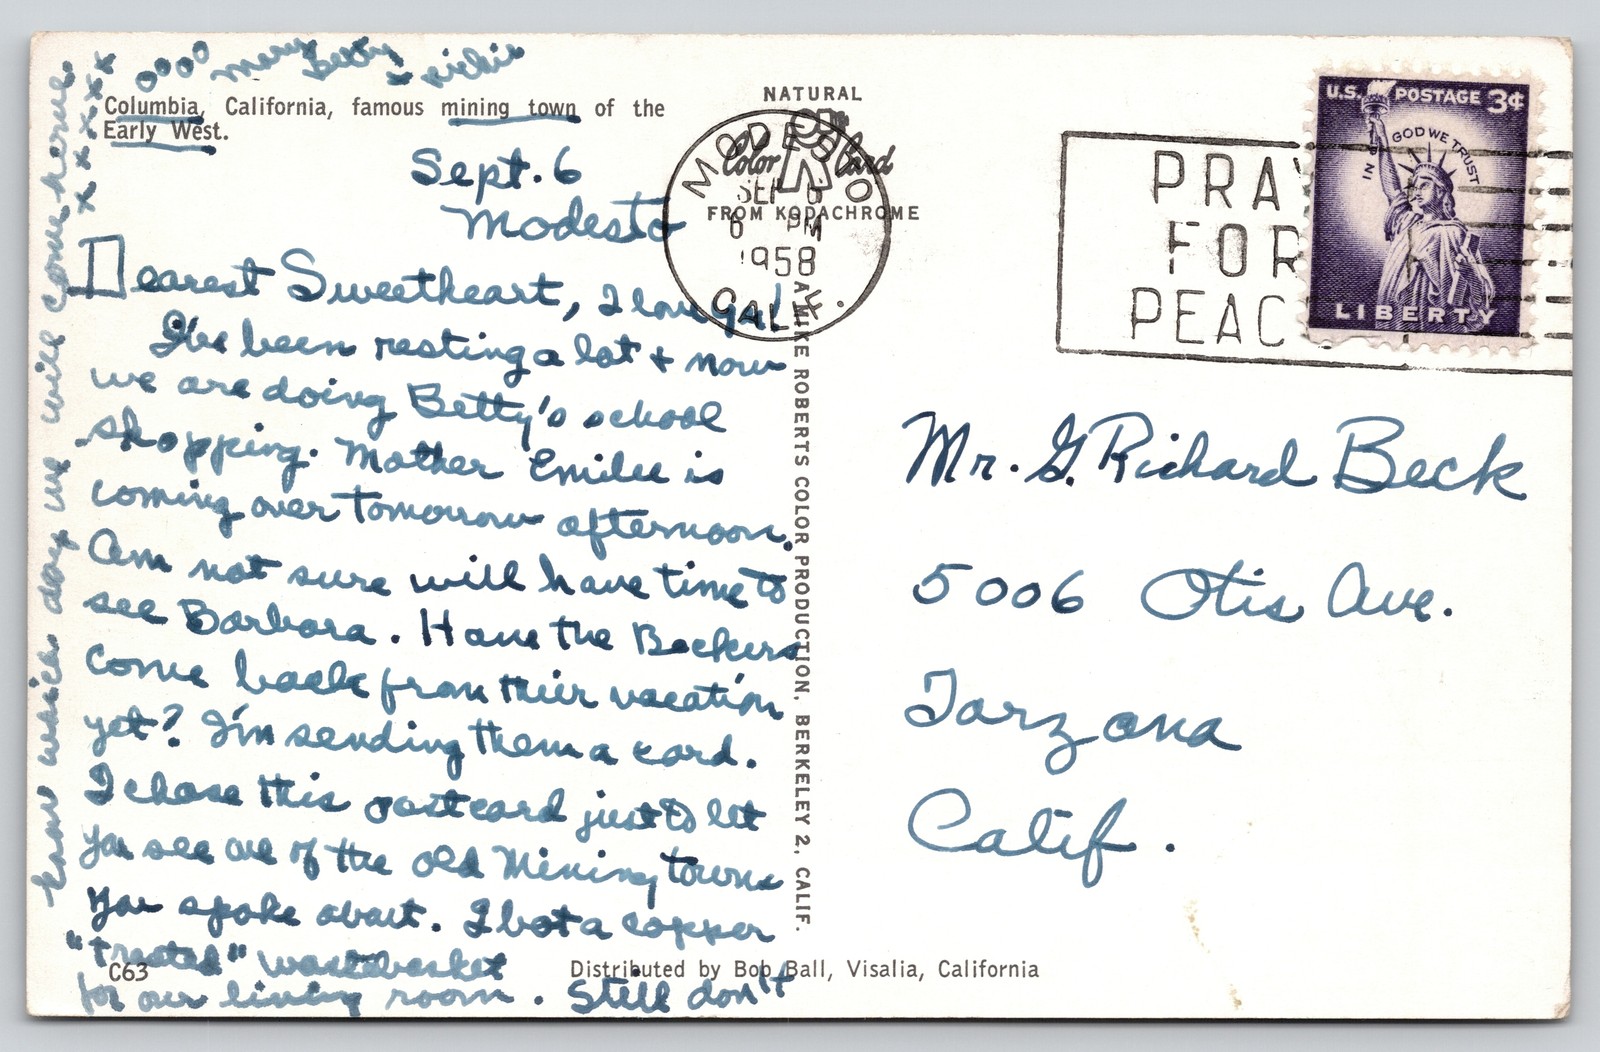 oooo Mary Betty + Richie
x x x x x x x
Columbia, California, famous mining town of the
Early West.
Sept. 6
Modesto
Dearest Sweetheart, I love you!
I've been resting a lot + now
we are doing Betty's school
shopping. Mother Emilee is
coming over tomorrow afternoon.
Am not sure will have time to
see Barbara. Have the Beckers
come back from their vacation
yet? I'm sending them a card.
I chose this postcard just to let
you see one of the old Mining towns
you spoke about. I bot a copper
"treated" wastebasket
for our living room. Still don't
know which day we will come home.
C63
NATURAL
Color Card
FROM KODACHROME
MODESTO
SEP 6
6 PM
1958
CALIF.
MIKE ROBERTS COLOR PRODUCTION, BERKELEY 2, CALIF.
Distributed by Bob Ball, Visalia, California
PRAY
FOR
PEACE
U.S. POSTAGE 3¢
IN GOD WE TRUST
LIBERTY
Mr. G. Richard Beck
5006 Otis Ave.
Tarzana
Calif.